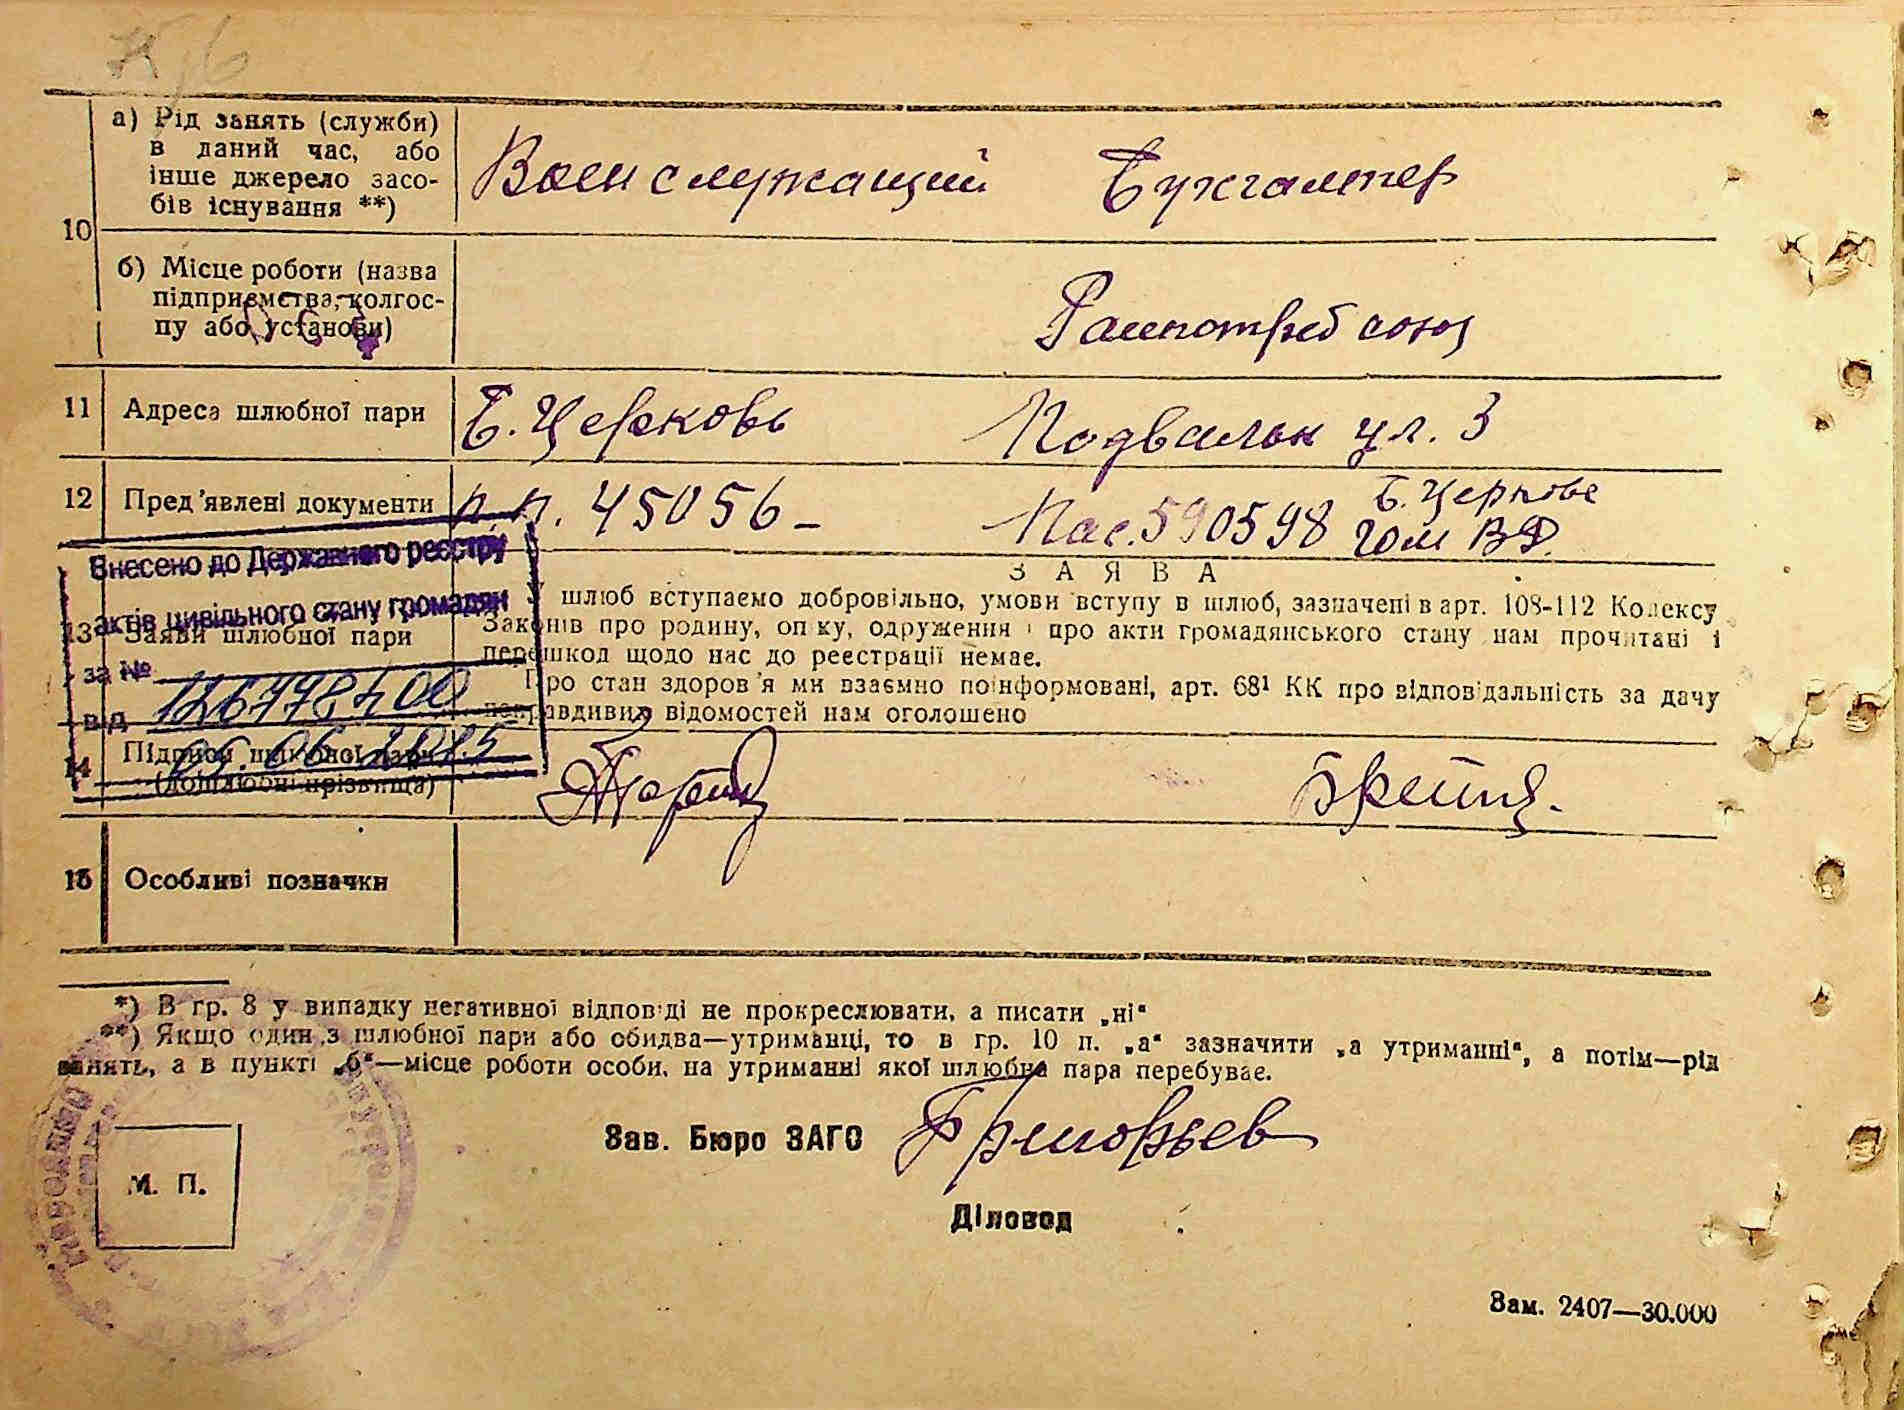 а) Рід занять (служби)
в даний час, або
інше джерело засо-
бів існування **)
Воен служащий Бухгалтер
10
б) Місце роботи (назва
підприємства, колгос-
пу або установи)
Райпотреб союз
11 Адреса шлюбної пари Б. Церковь Подвальн ул. 3
12 Пред'явлені документи п.п. 45056 – Пас. 590598 Б. Церкове
ГОМ ВД.
Внесено до Державного реєстру
актів цивільного стану громадян
за №
від
13 Заяви шлюбної пари
ЗАЯВА
У шлюб вступаємо добровільно, умови вступу в шлюб, зазначені в арт. 108-112 Кодексу
Законів про родину, опіку, одруження і про акти громадянського стану нам прочитані і
перешкод щодо нас до реєстрації немає.
Про стан здоров'я ми взаємно поінформовані, арт. 68¹ КК про відповідальність за дачу
неправдивих відомостей нам оголошено
14 Підписи шлюбної пари
(дошлюбні прізвища)
15 Особливі позначки
*) В гр. 8 у випадку негативної відповіді не прокреслювати, а писати „ні“
**) Якщо один з шлюбної пари або обидва—утриманці, то в гр. 10 п. „а“ зазначити „а утриманні“, а потім—рід
занять, а в пункті „б“—місце роботи особи, на утриманні якої шлюбна пара перебуває.
Зав. Бюро ЗАГС Григорьев
М. П.
Діловод
Зам. 2407—30.000